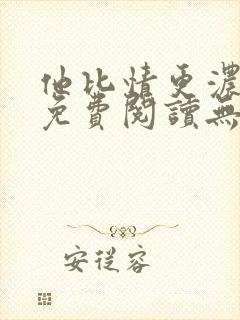 他比情更濃
免費閱讀無
安從容